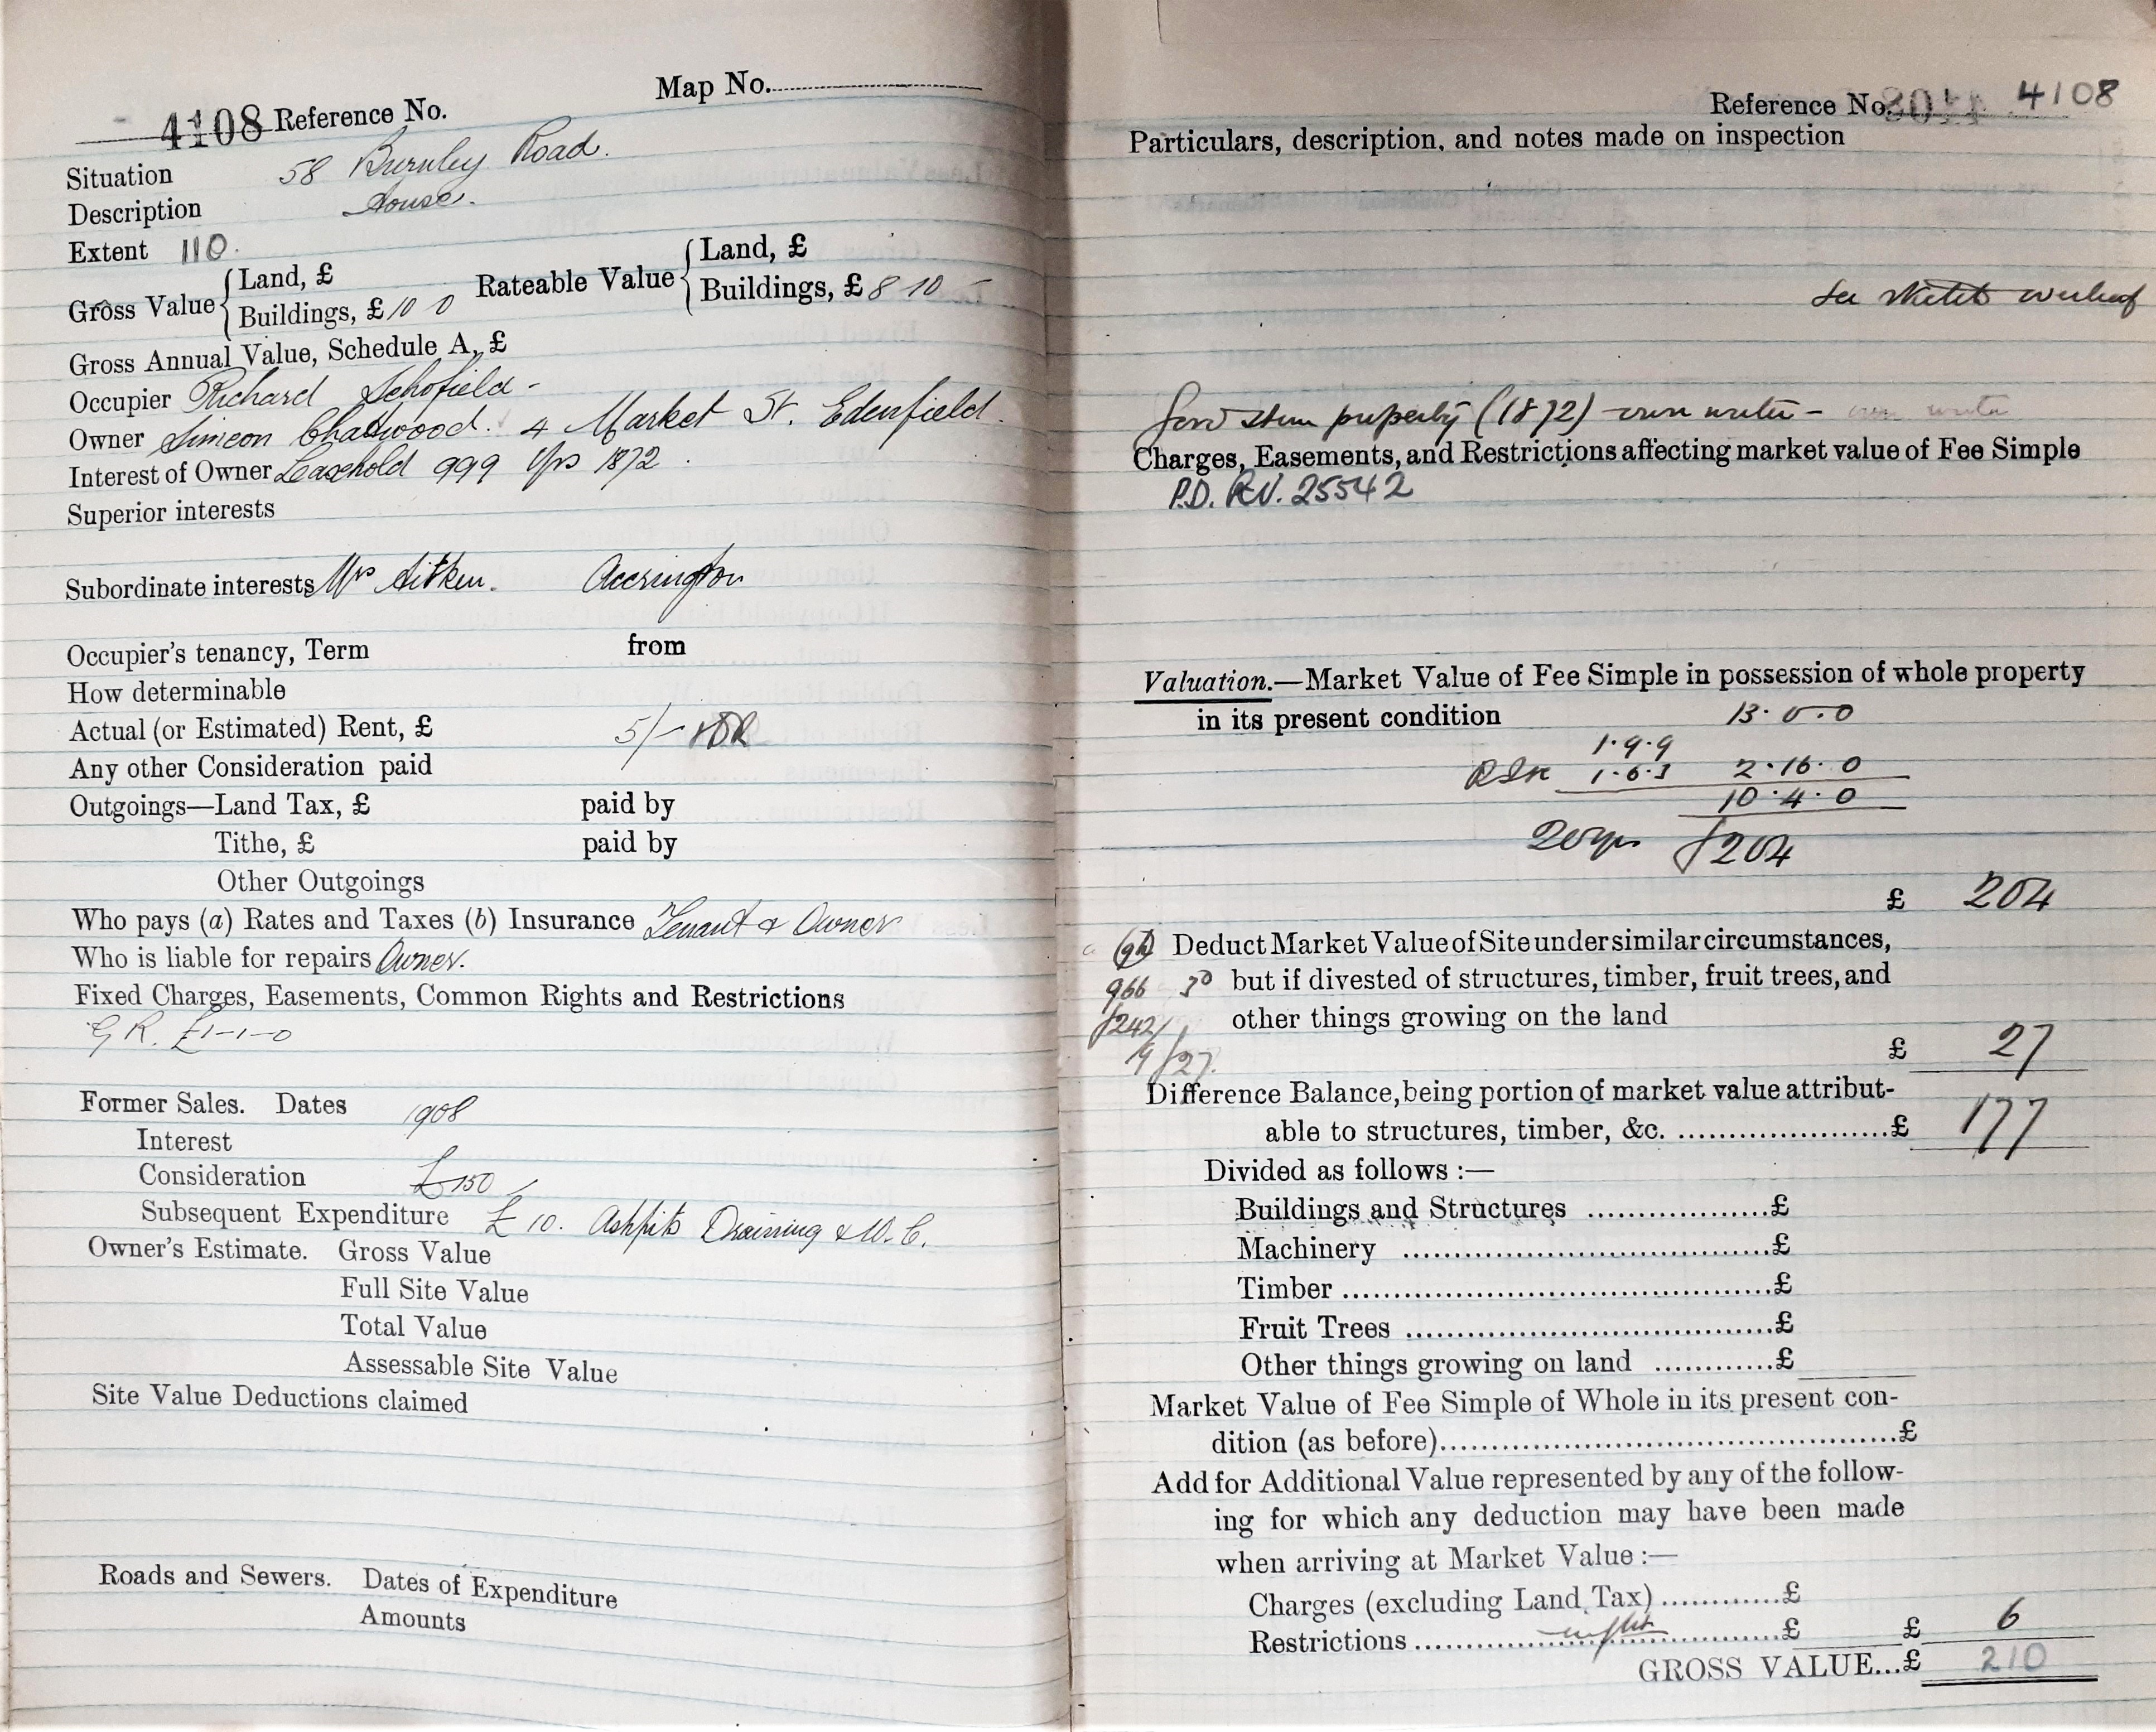 4108 Reference No. Map No.
Situation 58 Burnley Road.
Description House.
Extent 110.
Gross Value { Land, £ Rateable Value { Land, £
Buildings, £ 10 0 Buildings, £ 8 10 -
Gross Annual Value, Schedule A, £
Occupier Richard Schofield -
Owner Simeon Chatwood. 4 Market St. Edenfield.
Interest of Owner Leasehold 999 Yrs 1872.
Superior interests
Subordinate interests Mrs Aitken. Accrington
Occupier's tenancy, Term from
How determinable
Actual (or Estimated) Rent, £ 5/-
Any other Consideration paid
Outgoings—Land Tax, £ paid by
Tithe, £ paid by
Other Outgoings
Who pays (a) Rates and Taxes (b) Insurance Tenant & Owner
Who is liable for repairs Owner.
Fixed Charges, Easements, Common Rights and Restrictions
G R. £1-1-0
Former Sales. Dates 1908
Interest
Consideration £150
Subsequent Expenditure £10. Ashpits Draining & W.C.
Owner's Estimate. Gross Value
Full Site Value
Total Value
Assessable Site Value
Site Value Deductions claimed
Roads and Sewers. Dates of Expenditure
Amounts
Reference No. 4108
Particulars, description, and notes made on inspection
See sketch overleaf
Good stone property (1872)
Charges, Easements, and Restrictions affecting market value of Fee Simple
P.D. 25542
Valuation.—Market Value of Fee Simple in possession of whole property
in its present condition 13.0.0
1.9.9
1.6.3 2.16.0
10.4.0
20yrs £204
£ 204
Deduct Market Value of Site under similar circumstances,
966 but if divested of structures, timber, fruit trees, and
£242/ other things growing on the land
9/27. £ 27
Difference Balance, being portion of market value attribut-
able to structures, timber, &c. ......................£ 177
Divided as follows :—
Buildings and Structures ..................£
Machinery ......................................£
Timber ............................................£
Fruit Trees .....................................£
Other things growing on land ............£
Market Value of Fee Simple of Whole in its present con-
dition (as before)................................................£
Add for Additional Value represented by any of the follow-
ing for which any deduction may have been made
when arriving at Market Value :—
Charges (excluding Land Tax) ............£
Restrictions ....................................£ £ 6
GROSS VALUE...£ 210